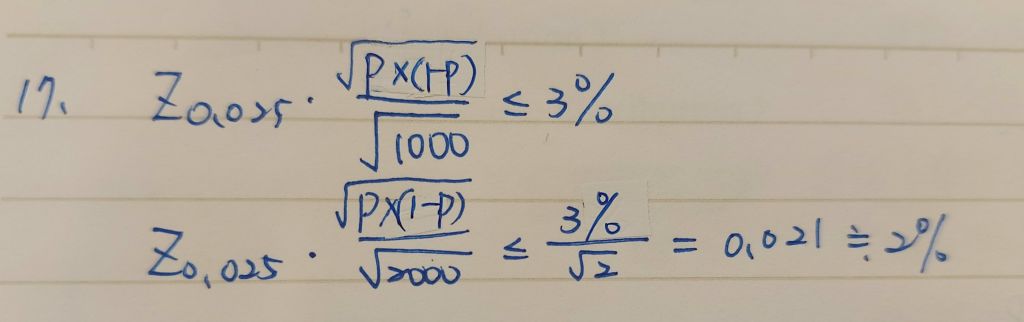 17. Z0.025 · √(p×(1-p)) / √1000 ≤ 3%
Z0.025 · √(p×(1-p)) / √2000 ≤ 3% / √2 = 0.021 ≒ 2%